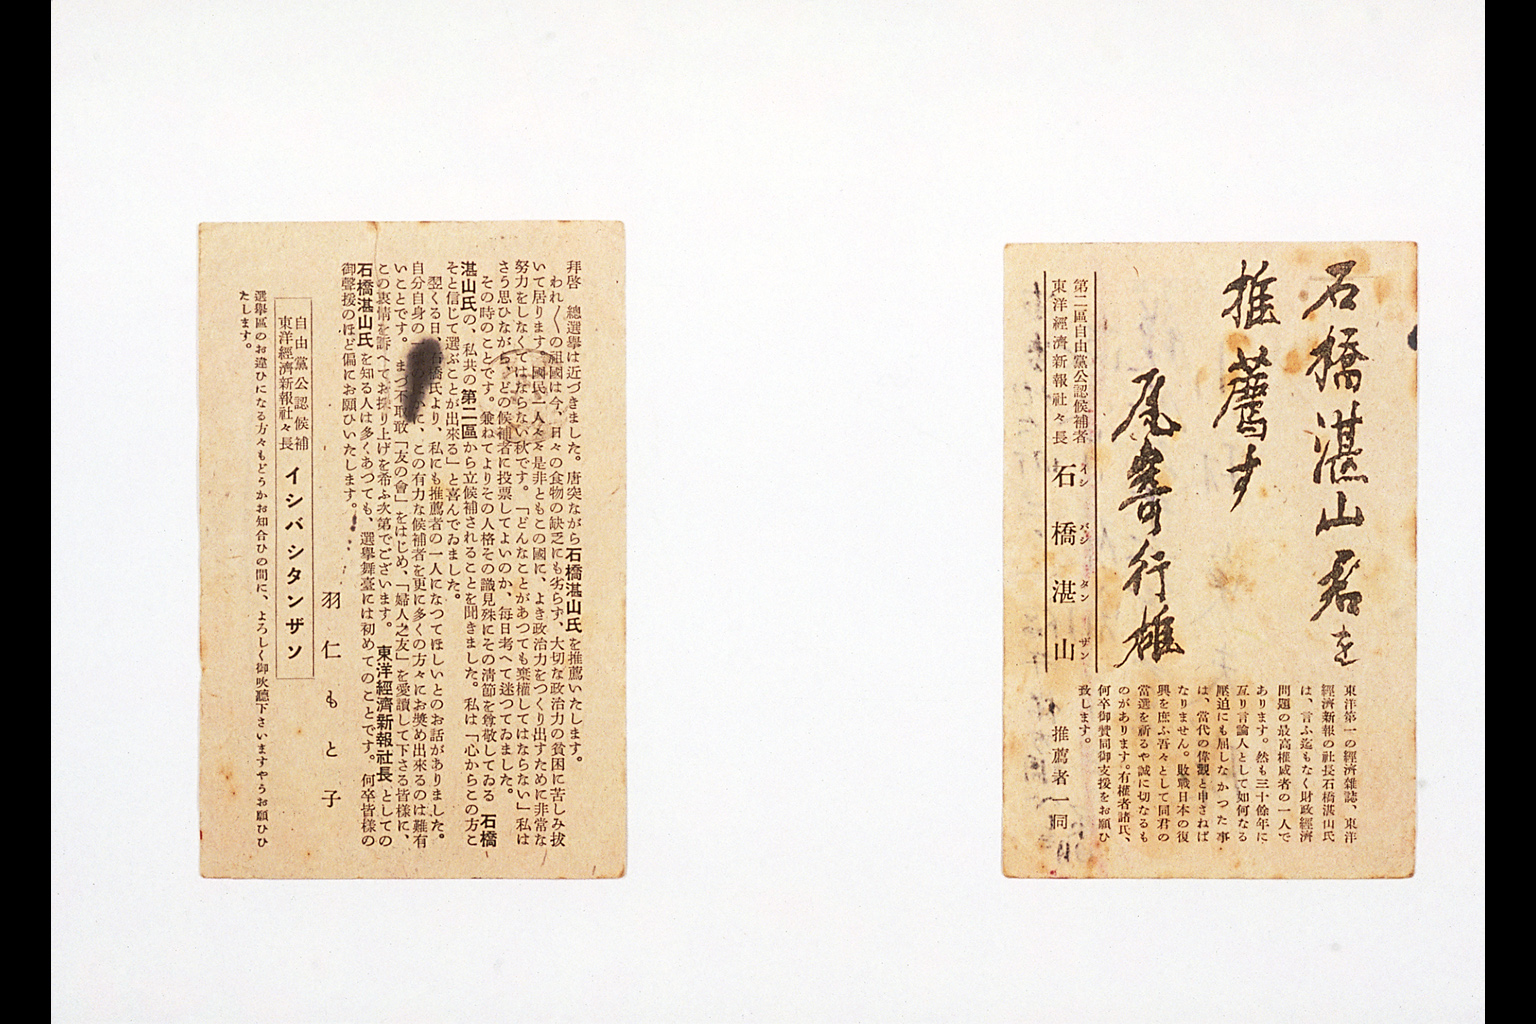 石橋湛山君を
推薦す
尾嵜行雄
東洋第一の經濟雜誌、東洋
經濟新報の社長石橋湛山氏
は、言ふ迄もなく財政經濟
問題の最高權威者の一人で
あります。然も三十餘年に
亙り言論人として如何なる
壓迫にも屈しなかつた事
は、當代の偉觀と申さねば
なりません。敗戰日本の復
興を庶ふ吾々として同君の
當選を祈るや誠に切なるも
のがあります。有權者諸氏、
何卒御贊同御支援をお願ひ
致します。
推薦者一同
第二區自由黨公認候補者
東洋經濟新報社々長
イシ バシ タン ザン
石橋湛山
拜啓 總選擧は近づきました。唐突ながら石橋湛山氏を推薦いたします。
われ〳〵の祖國は今、日々の食物の缺乏にも劣らず、大切な政治力の貧困に苦しみ拔
いて居ります。國民一人々々是非ともこの國に、よき政治力をつくり出すために非常な
努力をしなくてはならない秋です。「どんなことがあつても棄權してはならない」私は
さう思ひながら、どの候補者に投票してよいのか、毎日考へて迷つてゐました。
その時のことです。兼ねてよりその人格その識見殊にその淸節を尊敬してゐる石橋
湛山氏の、私共の第二區から立候補されることを聞きました。私は「心からこの方こ
そと信じて選ぶことが出來る」と喜んでゐました。
翌くる日、石橋氏より、私にも推薦者の一人になつてほしいとのお話がありました。
自分自身の に、この有力な候補者を更に多くの方々にお奬め出來るのは難有
いことです。まづ不取敢「友の會」をはじめ、「婦人之友」を愛讀して下さる皆樣に、
この衷情を訴へてお採り上げを希ふ次第でございます。東洋經濟新報社長としての
石橋湛山氏を知る人は多くあつても、選擧舞臺には初めてのことです。何卒皆樣の
御聲援のほど偏にお願ひいたします。
羽仁もと子
自由黨公認候補
東洋經濟新報社々長
イシバシタンザン
選擧區のお違ひになる方々もどうかお知合ひの間に、よろしく御吹聽下さいますやうお願ひひ
たします。